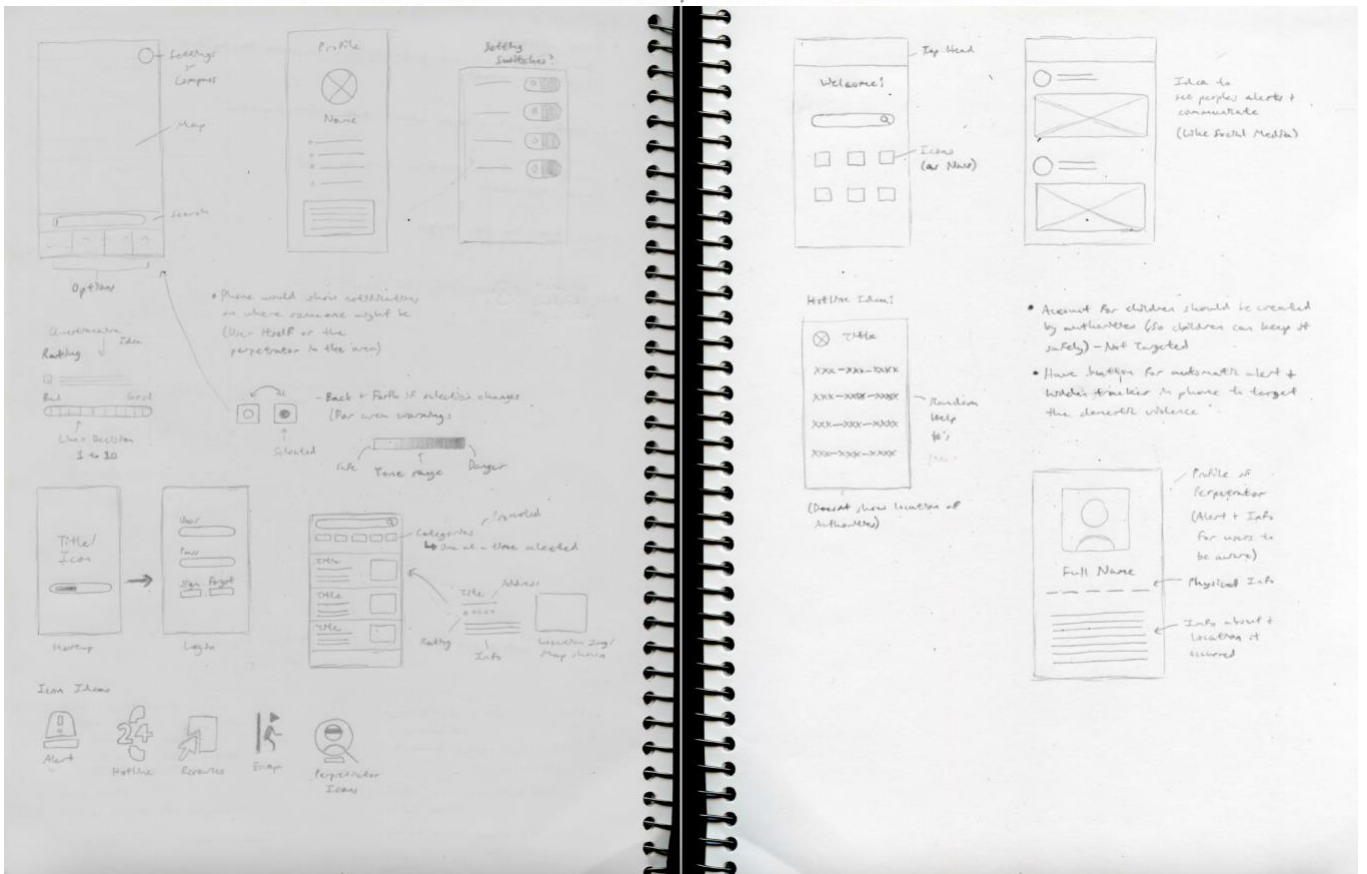 Settings
+
Compass
Map
Search
Options
Profile
Name
Setting
Switches?
• Phone would show notifications
on where someone might be
(User itself or the
perpetrator in the area)
Questionnaire
Idea
Rating
Q
Bad
Good
User Decision
1 to 10
- Back + Forth if selection changes
(For area warnings
Selected
Safe
Tone range
Danger
Title/
Icon
Startup
User
Pass
Sign
Forgot
Login
Categories
One at a time selected
Title
Title
Title
Title
Address
Rating
Info
Location Img/
Map shown
Icon Ideas
Alert
24
Hotline
Resources
Escape
Perpetrator
Icons
Top Head
Welcome!
Icons
(or Nav)
Idea to
see peoples alerts +
communicate
(Like Social Media)
Hotline Idea!
Title
xxx-xxx-xxxx
xxx-xxx-xxxx
xxx-xxx-xxxx
xxx-xxx-xxxx
Random
Help
#'s
(Doesnt show location of
Authorities)
• Account for children should be created
by authorities (so children can keep it
safely) - Not Targeted
• Have button for automatic alert +
hidden tracker in phone to target
the domestic violence
Full Name
Profile of
Perpetrator
(Alert + Info
for users to
be aware)
Physical Info
Info about +
Location it
occurred